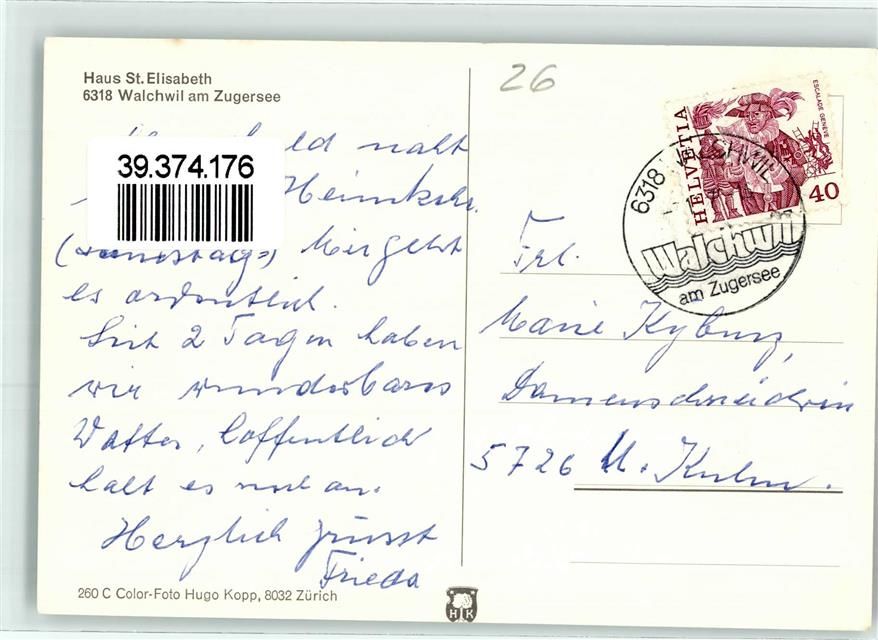 Haus St. Elisabeth
6318 Walchwil am Zugersee
26
39.374.176
naht
Heimkehr.
(Samstag) Mir geht
es ordentlich.
Seit 2 Tagen haben
wir wunderbares
Wetter, hoffentlich
halt es noch an.
Herzlich grüsst
Frieda
260 C Color-Foto Hugo Kopp, 8032 Zürich
H K
HELVETIA
ESCALADE GENÈVE
40
6318 WALCHWIL
Walchwil
am Zugersee
Frl.
Marie Kyburz,
Damenschneiderin
5726 U. Kulm.